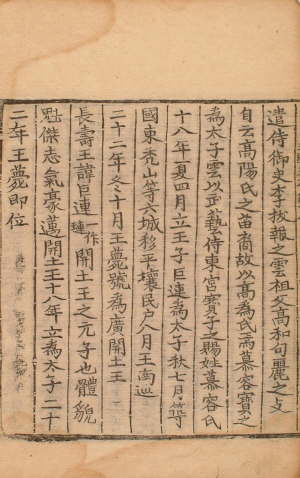 遣侍御史李拔報之雲祖父高和句麗之攴
自云高陽氏之苗裔故以高為氏焉慕容寶之
為太子雲以武藝侍東宮寶子之賜姓慕容氏
十八年夏四月立王子巨連為太子秋七月築
國東禿山等六城移平壤民戶八月王南巡
二十二年冬十月王薨號為廣開土王
長壽王諱巨連一作璉開土王之元子也體貌
魁傑志氣豪邁開土王十八年立為太子二十
二年王薨即位